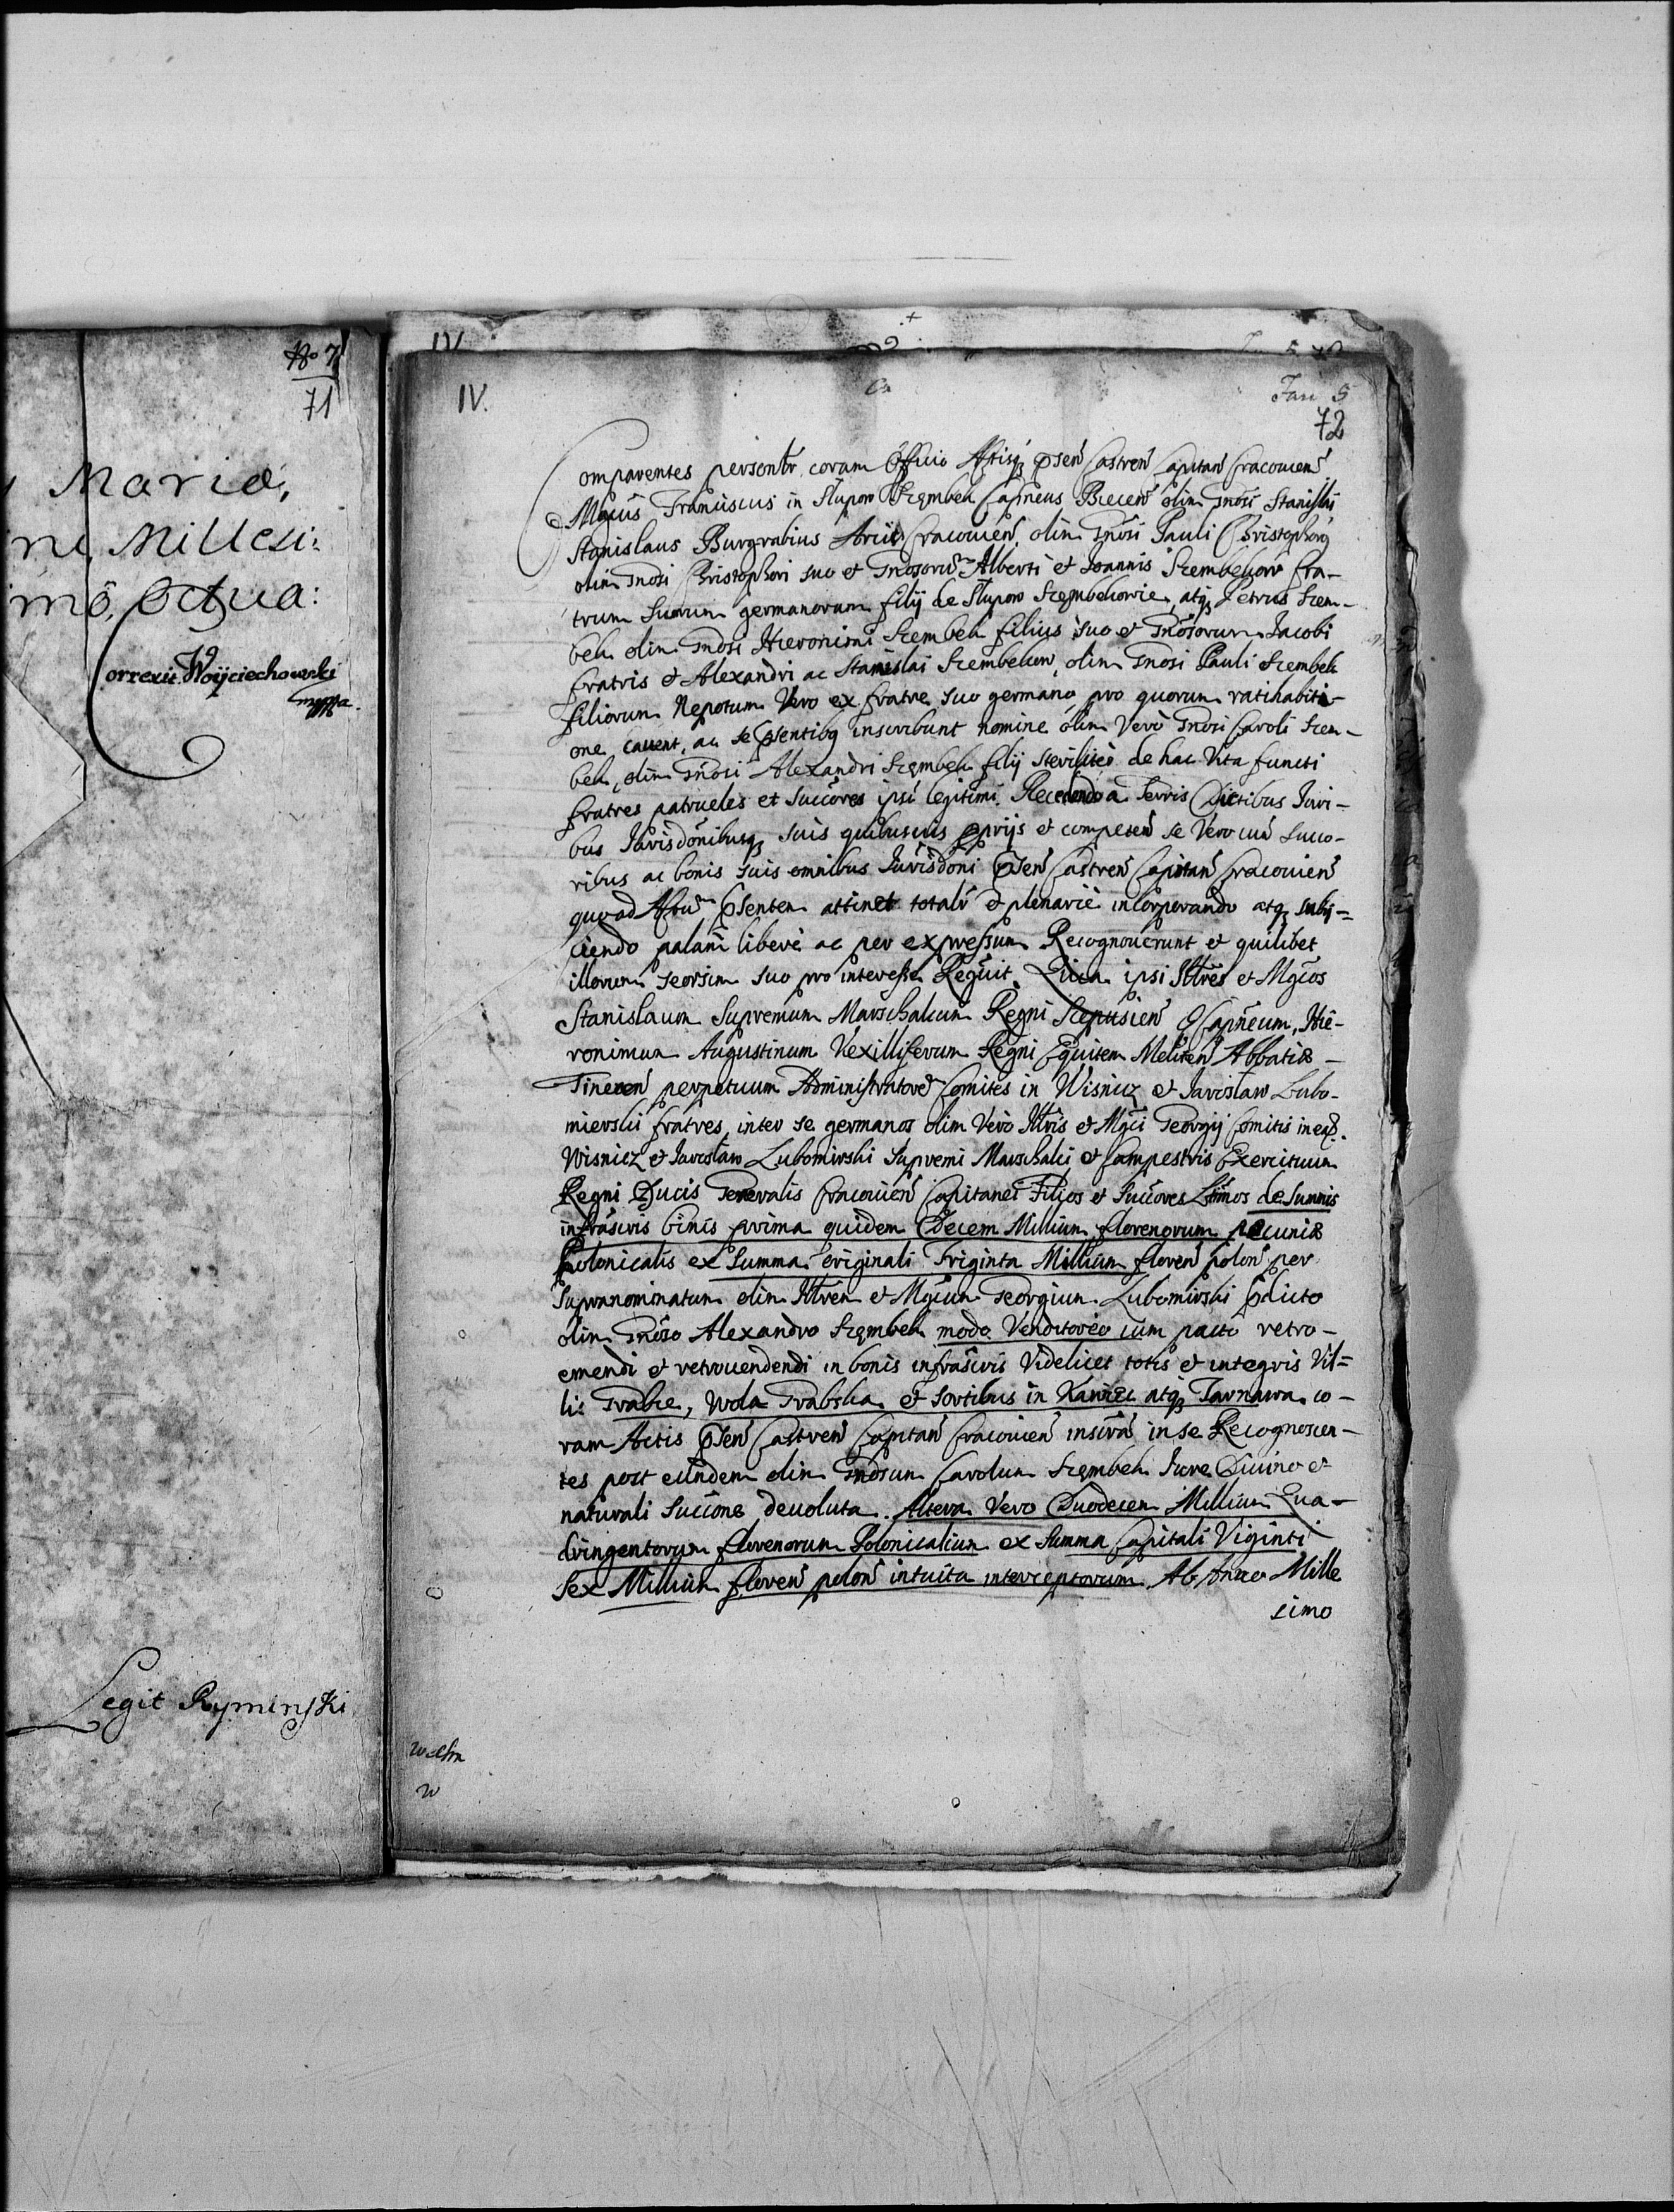 No 7
71
Mariæ,
Millesi:
mô, Octua:
Correxit Woyciechowski
mppa.
Legit Ryminski
IV.
IV.
Fasc 5
72
Comparentes personlr coram Officio Actisq pñsen Castren Capitan Cracouien
Mgcus Franciscus in Słupow Szembek Capneus Biecen olim Gnosi Stanislai
Stanislaus Burgrabius Arcis Cracouien, olim Gnosi Pauli Christophory
olim Gnosi Christophori suo et Gnosoru Alberti et Joannis Szembekow fra-
trum suorum germanorum filij de Słupow Szembekowie, atq Petrus Szem-
bek olim Gnosi Hieronimi Szembek filius suo et Gnosorum Jacobi
fratris et Alexandri ac Stanislai Szembekow, olim Gnosi Pauli Szembek
filiorum Nepotum Vero ex fratre suo germano pro quorum ratihabiti-
one cauent, ac se pñsentibq inscribunt nomine olim Vero Gnosi Caroli Szem-
bek, olim Gnosi Alexandri Szembek filij steriliter de hac Vita functi
fratres patrueles et Succores ipsi legitimi. Recedendo a Terris Districtibus Juri-
bus Jurisdõnibusq suis quibusuis pprijs et competen se Vero cum Succo-
ribus ac bonis suis omnibus Jurisdõni pñsen Castren Capitan Cracouien
quo ad Actu pñsentem attinet totalr et plenarie incorporando atq subij-
ciendo palam libere ac per expressum Recognouerunt et quilibet
illorum seorsim suo pro interesse Reguit. Quia ipsi Illres et Mgcos
Stanislaum Supremum Marschalcum Regni Scepusien Capneum, Hie-
ronimum Augustinum Vexilliferum Regni Equitem Meliten Abbatiæ
Tinecen perpetuum Administratore Comites in Wisnicz et Jaroslaw Lubo-
mierski fratres inter se germanos olim Vero Illris et Mgci Georgij Comitis in ead
Wisnicz et Jaroslaw Lubomirski Supremi Marschalci et Campestris Exercituum
Regni Ducis Generalis Cracouien Capitanei Filios et Succores Ltimos de Summis
infrascris binis prima quidem Decem Millium florenorum pecuniæ
Polonicalis ex Summa originali Triginta Millium floren polon per
Supranominatum olim Illrem et Mgcum Georgium Lubomirski pdicto
olim Gnoso Alexandro Szembek modo Venditorio cum pacto retro-
emendi et retrouendendi in bonis infrascris Videlicet totis et integris Vil=
lis Grabie, Wola Grabska et sortibus in Kamien atq Tarnawa co-
ram Actis pñsen Castren Capitan Cracouien inscra in se Recognoscen-
tes post eundem olim Gnosum Carolum Szembek Jure Diuino et
naturali Succione deuoluta. Altera Vero Duodecem Millium Qua-
dringentorum florenorum Polonicalium ex Summa Capitali Viginti
Sex Millium floren polon intuitu interceptorum Ab Anno Mille
simo